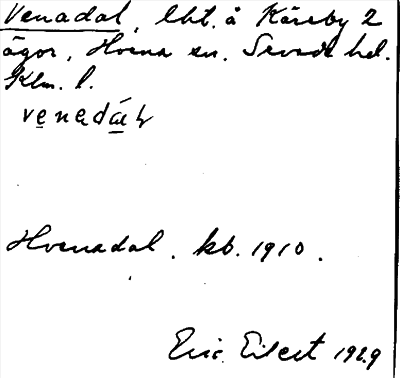 Venadal, lht. å Kåreby 2
ägor, Hvena sn. Sevede hd.
Klm. l.
venedáɫ
Hvenadal. kb. 1910.
Eric Eilert 1929